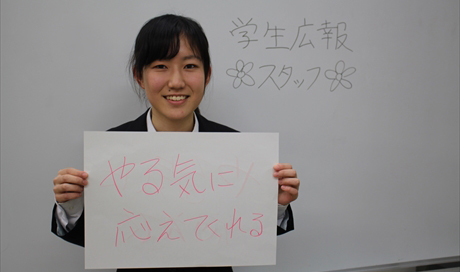 学生広報
スタッフ
やる気に
応えてくれる